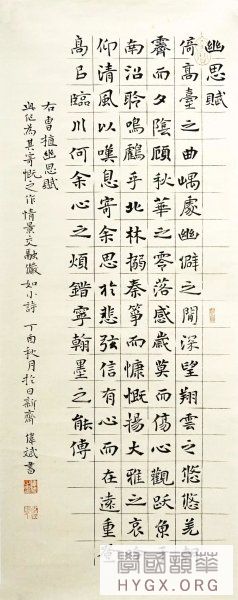 幽思賦
倚高臺之曲嵎處幽僻之閒深望翔雲之悠悠羌
霽而夕陰顧秋華之零落感歲莫而傷心觀躍魚
南沼聆鳴鶴乎北林搦素筆而慷慨揚大雅之哀
仰清風以嘆息寄余思於悲弦信有心而在遠重
高以臨川何余心之煩錯寧翰墨之能傳
右曹植幽思賦
為其寄慨之作情景交融儼如小詩 丁酉秋月於日新齋 偉斌書
學國韻華
HYGX.ORG